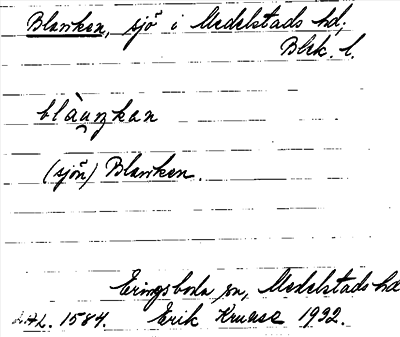 Blanken, sjö i Medelstads hd,
Blek. l.
blàuŋkan
(sjön) Blanken.
Eringsboda sn, Medelstads hd
LAL. 1584. Erik Kruuse 1932.